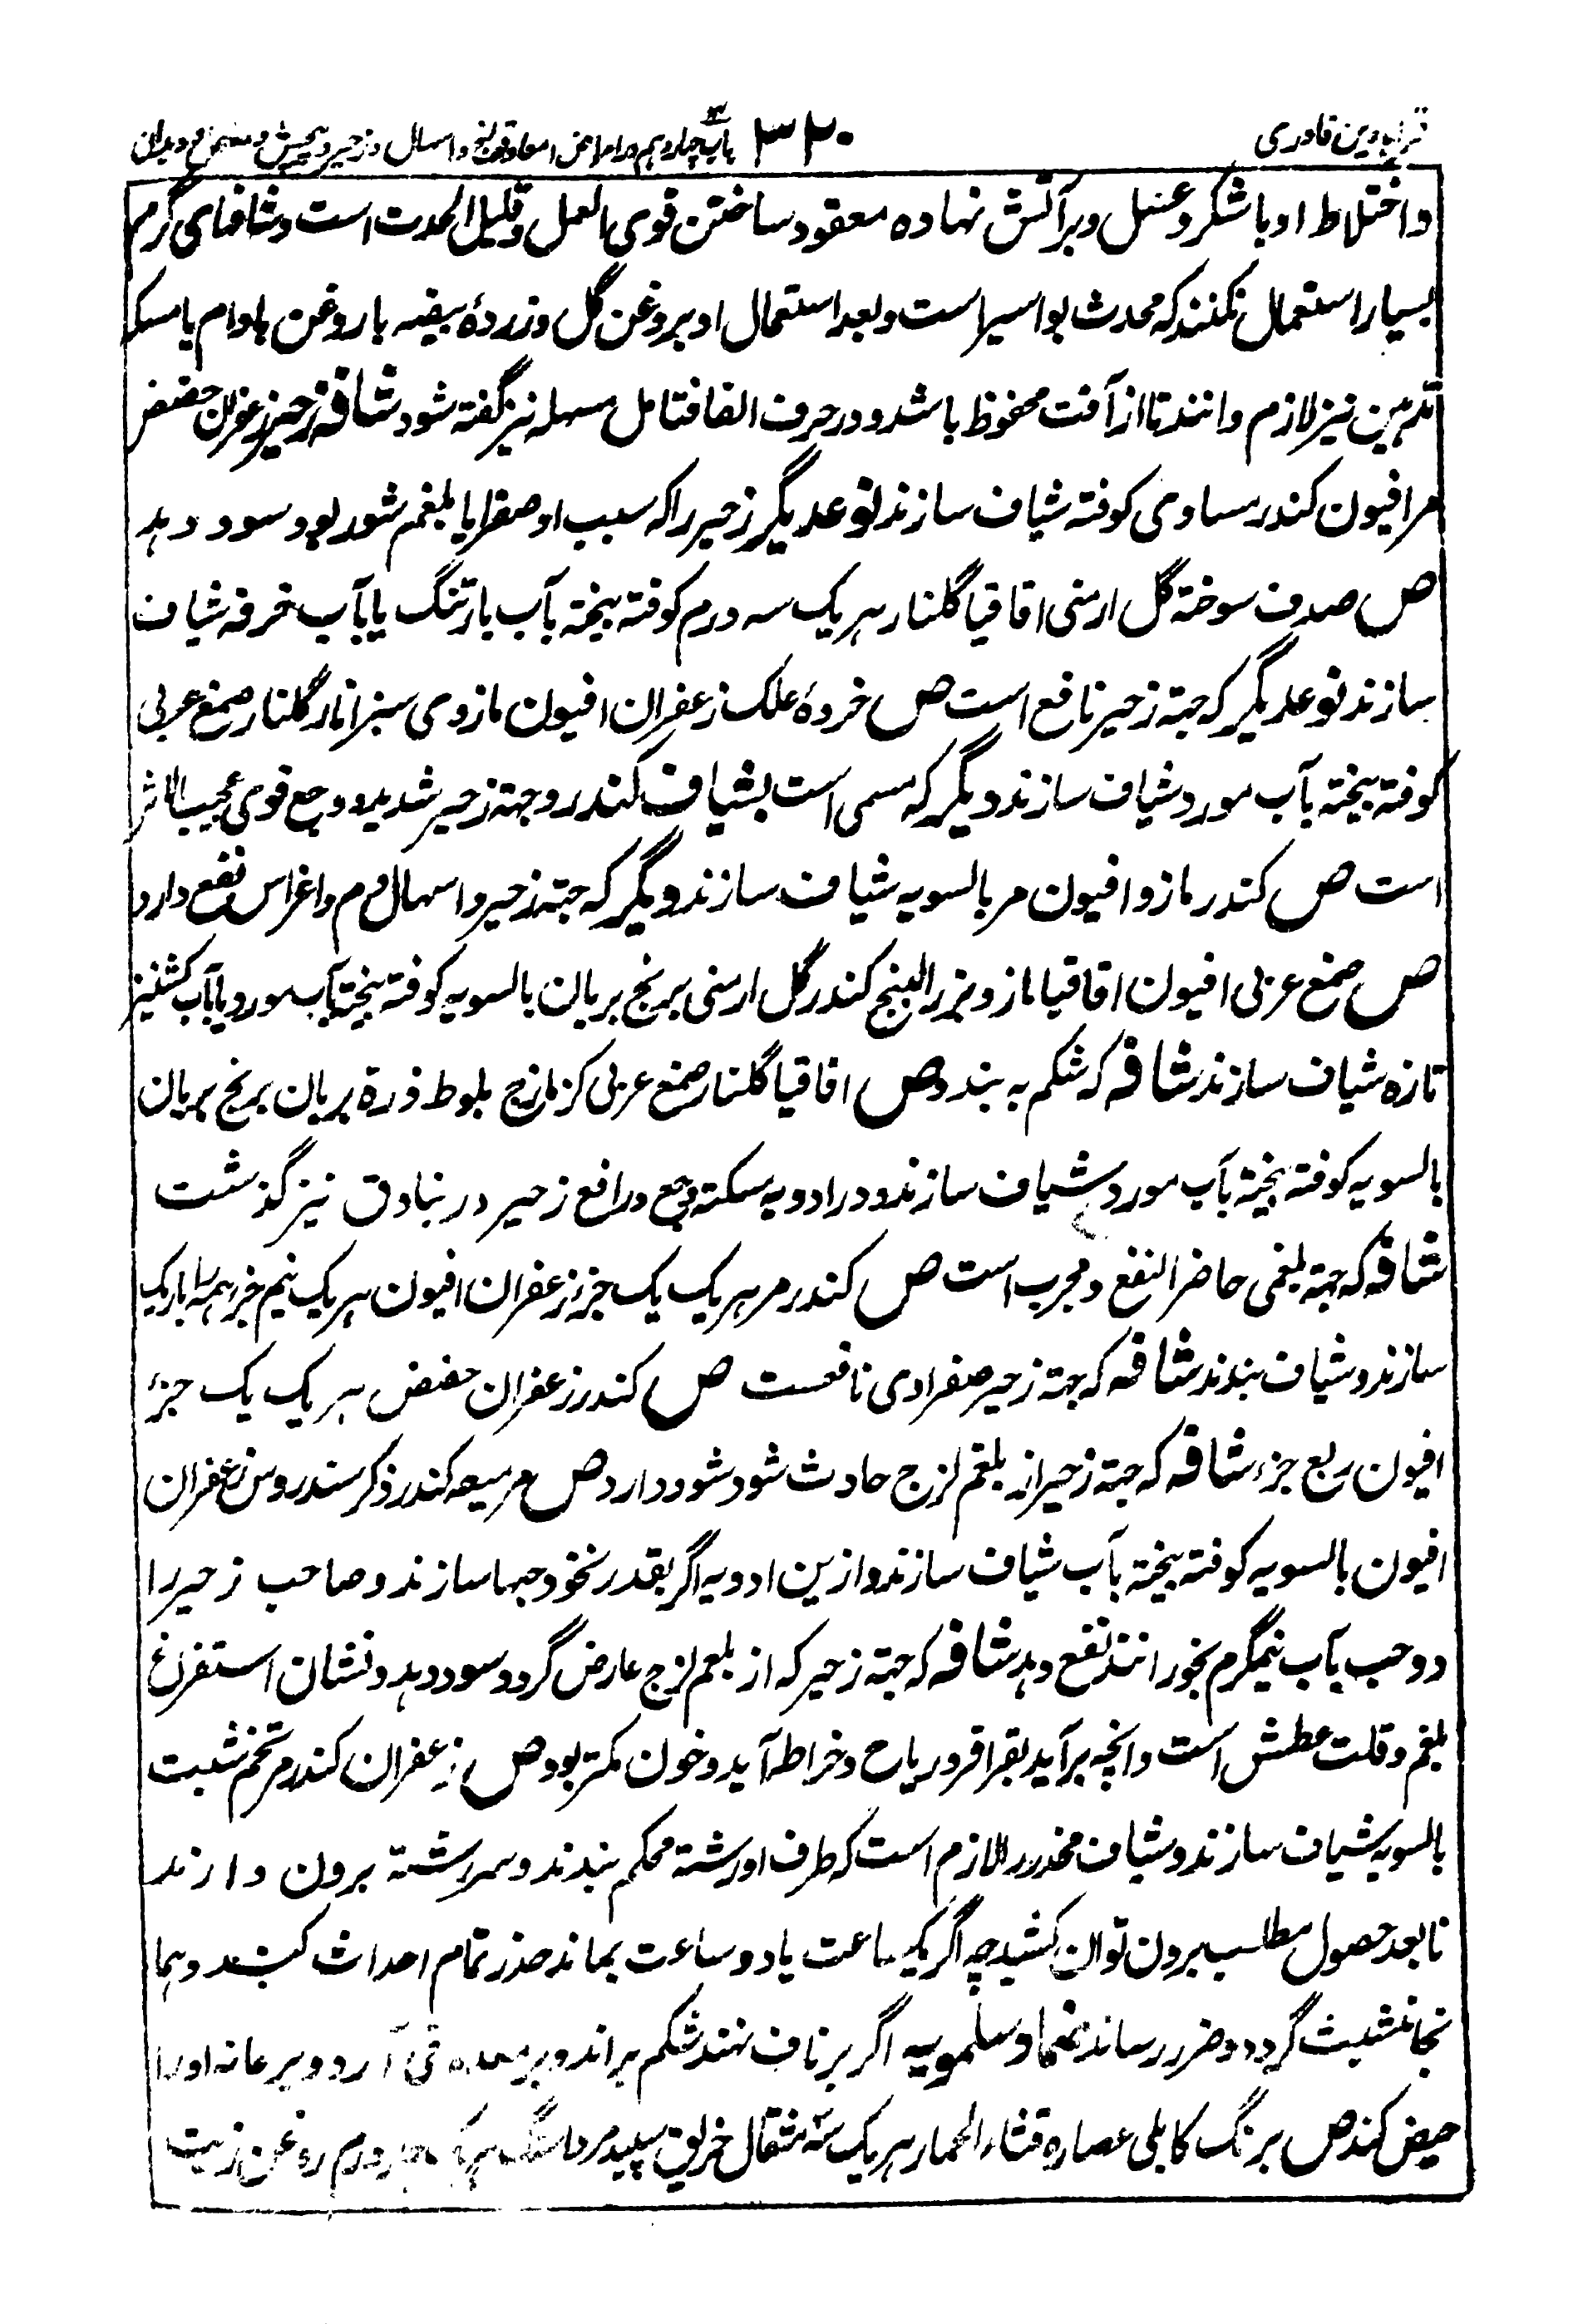 قرابادین قادری ۳۲۰ باب چهاردهم در امراض امعا و قولنج و اسهال و زحیر و پیچش و دیدان
و اختلاط او با شکر و عسل و بر آتش نهاده معقود ساختن قوی العمل و قلیل الحدت است و شافهای گرم
بسیار استعمال نکنند که محدث بواسیر است و بعد استعمال او بروغن گل و زردهٔ بیضه یا روغن بادام یا مسکه
تدهین نیز لازم دانند تا از آفت محفوظ باشد و در حرف الفا فتایل مسهله نیز گفته شود شافه زحیر زعفران حضض
مر افیون کندر مساوی کوفته شیاف سازند نوعدیگر زحیر را که سبب او صفرا یا بلغم شور بود سود دهد
ص صدف سوخته گل ارمنی اقاقیا گلنار هر یک سه درم کوفته بیخته بآب بارتنگ یا بآب خرفه شیاف
سازند نوعدیگر که جهته زحیر نافع است ص خردهٔ علک زعفران افیون مازوی سبز انار گلنار صمغ عربی
کوفته بیخته بآب مورد شیاف سازند دیگر که مسمی است بشیاف کندر و جهته زحیر شدید و وجع قوی عجیب الاثر
است ص کندر مازو افیون مر بالسویه شیاف سازند دیگر که جهته زحیر و اسهال دم و اغراس نفع دارد
ص صمغ عربی افیون اقاقیا مازو بزر البنج کندر گل ارمنی برنج بریان بالسویه کوفته بیخته بآب مورد یا بآب کشنیز
تازه شیاف سازند شافه که شکم به بندد ص اقاقیا گلنار صمغ عربی کزمازج بلوط ذرة بریان برنج بریان
بالسویه کوفته بیخته بآب مورد شیاف سازند و در ادویه مسکنه وجع و رافع زحیر در بنادق نیز گذشت
شافه که جهته بلغمی حاضر النفع و مجرب است ص کندر مر هر یک یک جزء زعفران افیون هر یک نیم جزء همه را باریک
سازند و شیاف بندند شافه که جهته زحیر صفراوی نافعست ص کندر زعفران حضض هر یک یک جزء
افیون ربع جزء شافه که جهته زحیر از بلغم لزج حادث شود سود دارد ص مر میعه کندر ذکر سندروس زعفران
افیون بالسویه کوفته بیخته بآب شیاف سازند و ازین ادویه اگر بقدر نخود حبها سازند و صاحب زحیر را
دو حب بآب نیمگرم بخورانند نفع دهد شافه که جهته زحیر که از بلغم لزج عارض گردد سود دهد و نشان استفراغ
بلغم و قلت عطش است و انچه برآید بقراقر و ریاح و خراطه آید و خون کمتر بود ص زعفران کندر مر تخم شبت
بالسویه شیاف سازند و شیاف مخدر را لازم است که طرف او رشته محکم بندند و سررشته برون دارند
تا بعد حصول مطلب برون توان کشید چه اگر یکساعت یا دو ساعت بماند خدر تمام احداث کند و همان
نجا متشبث گردد و ضرر رساند ضماد سلمویه اگر بر ناف نهند شکم براند و بر معده قی آرد و بر عانه اورا
حیض کند ص برنگ کابلی عصاره قثاء الحمار هر یک سه مثقال خربق سپید مرداسنگ هر یک درم روغن زیت